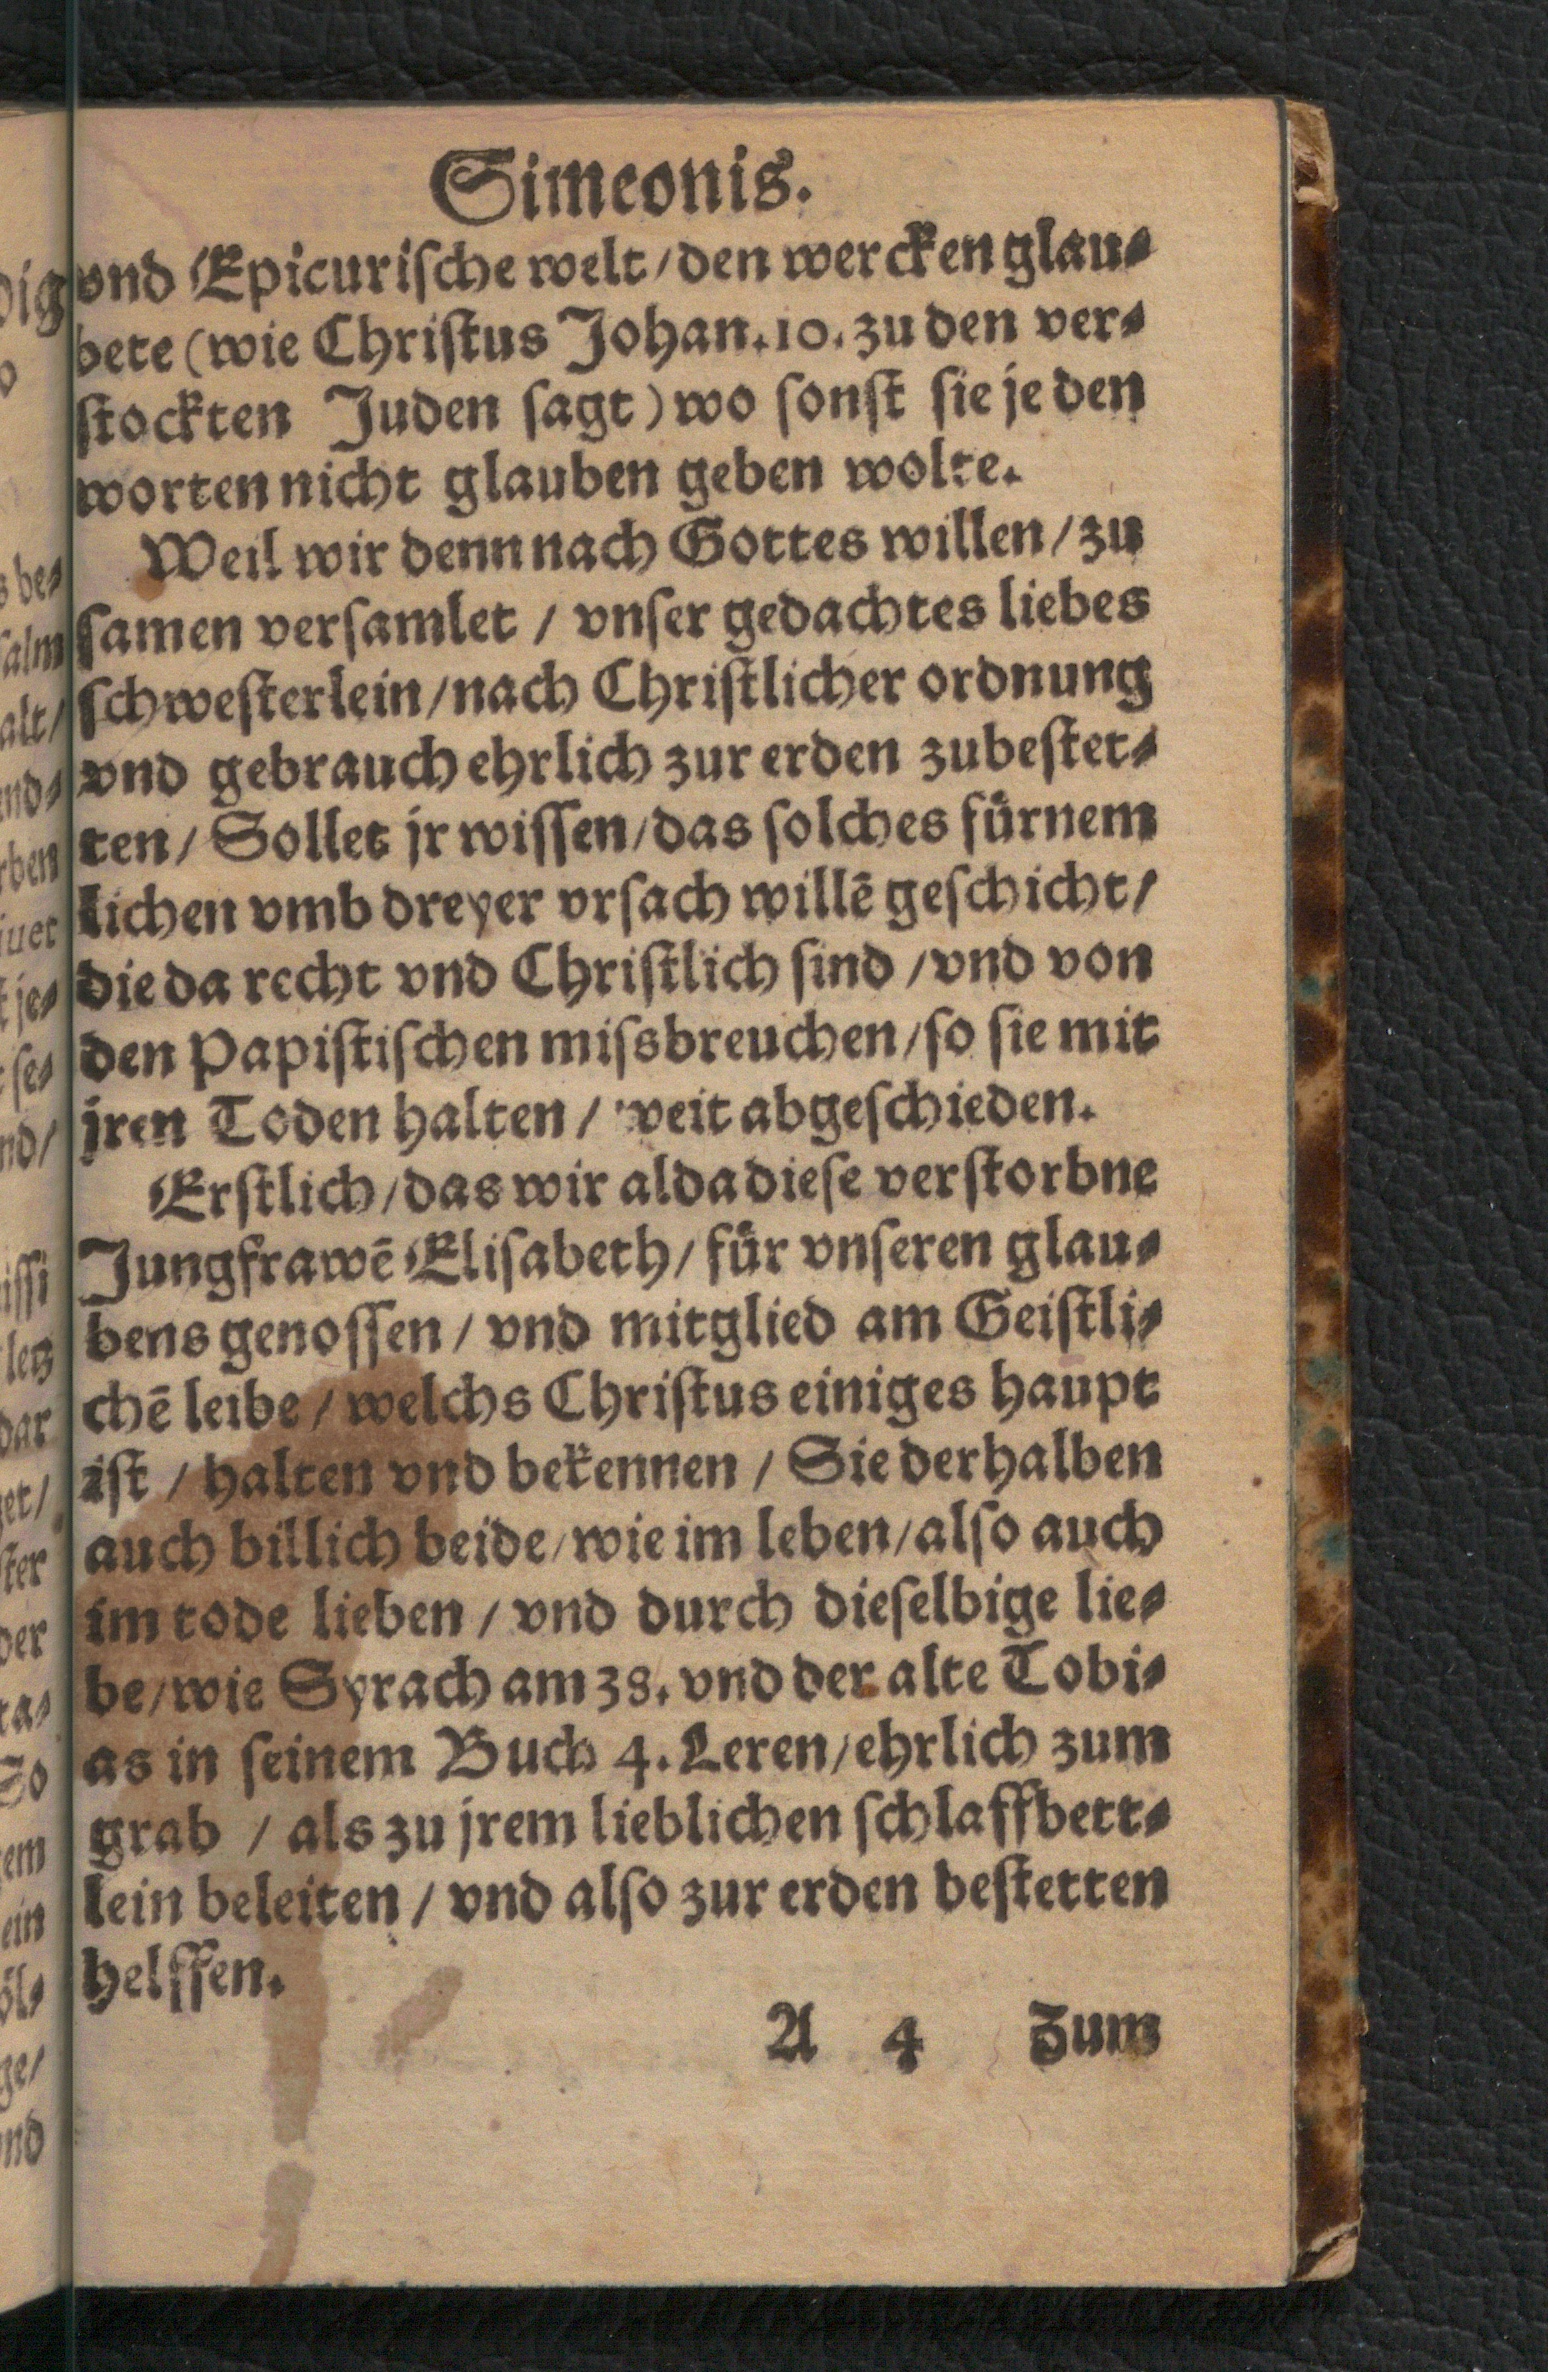 Simeonis.
vnd Epicurische welt / den wercken glau⸗
bete (wie Christus Johan. 10. zu den ver⸗
stockten Juden sagt) wo sonst sie je den
worten nicht glauben geben wolte.
Weil wir denn nach Gottes willen / zu
samen versamlet / vnser gedachtes liebes
schwesterlein / nach Christlicher ordnung
vnd gebrauch ehrlich zur erden zubestet⸗
ten / Sollet jr wissen / das solches fürnem
lichen vmb dreyer vrsach willē geschicht /
die da recht vnd Christlich sind / vnd von
den Papistischen missbreuchen / so sie mit
jren Toden halten / weit abgeschieden.
Erstlich / das wir alda diese verstorbne
Jungfrawē Elisabeth / für vnseren glau⸗
bens genossen / vnd mitglied am Geistli⸗
chē leibe / welchs Christus einiges haupt
ist / halten vnd bekennen / Sie derhalben
auch billich beide / wie im leben / also auch
im tode lieben / vnd durch dieselbige lie⸗
be / wie Syrach am 38. vnd der alte Tobi⸗
as in seinem Buch 4. Leren / ehrlich zum
grab / als zu jrem lieblichen schlaffbett⸗
lein beleiten / vnd also zur erden bestetten
helffen.
A 4 Zum